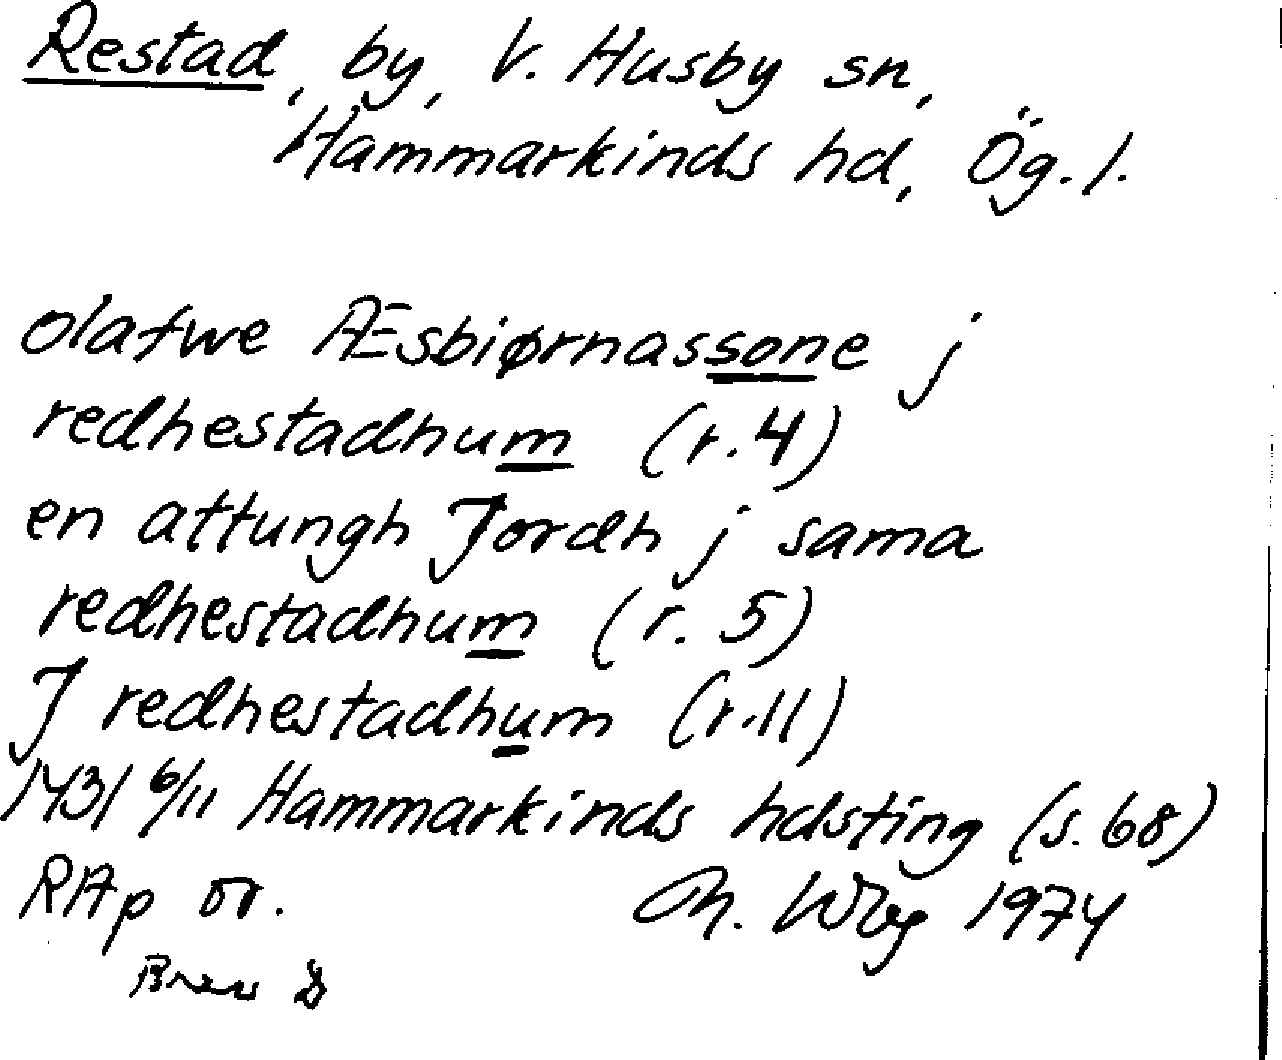 Restad, by, V. Husby sn,
Hammarkinds hd, Ög. l.
olafwe Æsbiørnassone j
redhestadhum (r. 4)
en attungh Jordh j sama
redhestadhum (r. 5)
J redhestadhum (r. 11)
1431 6/11 Hammarkinds hdsting (s. 68)
RAp or.
1974